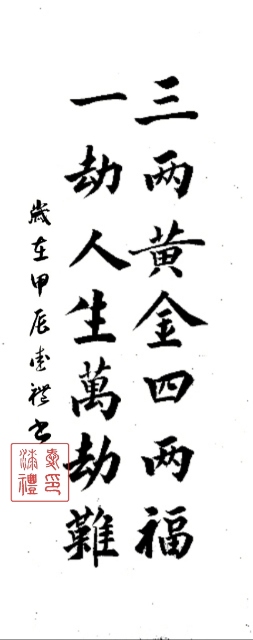 三两黄金四两福
一劫人生萬劫難
歲在甲辰 禮書